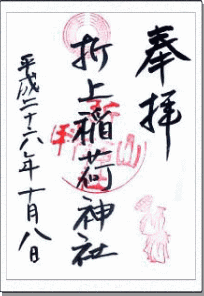 奉拝
折上稲荷神社
平成二十六年十月八日